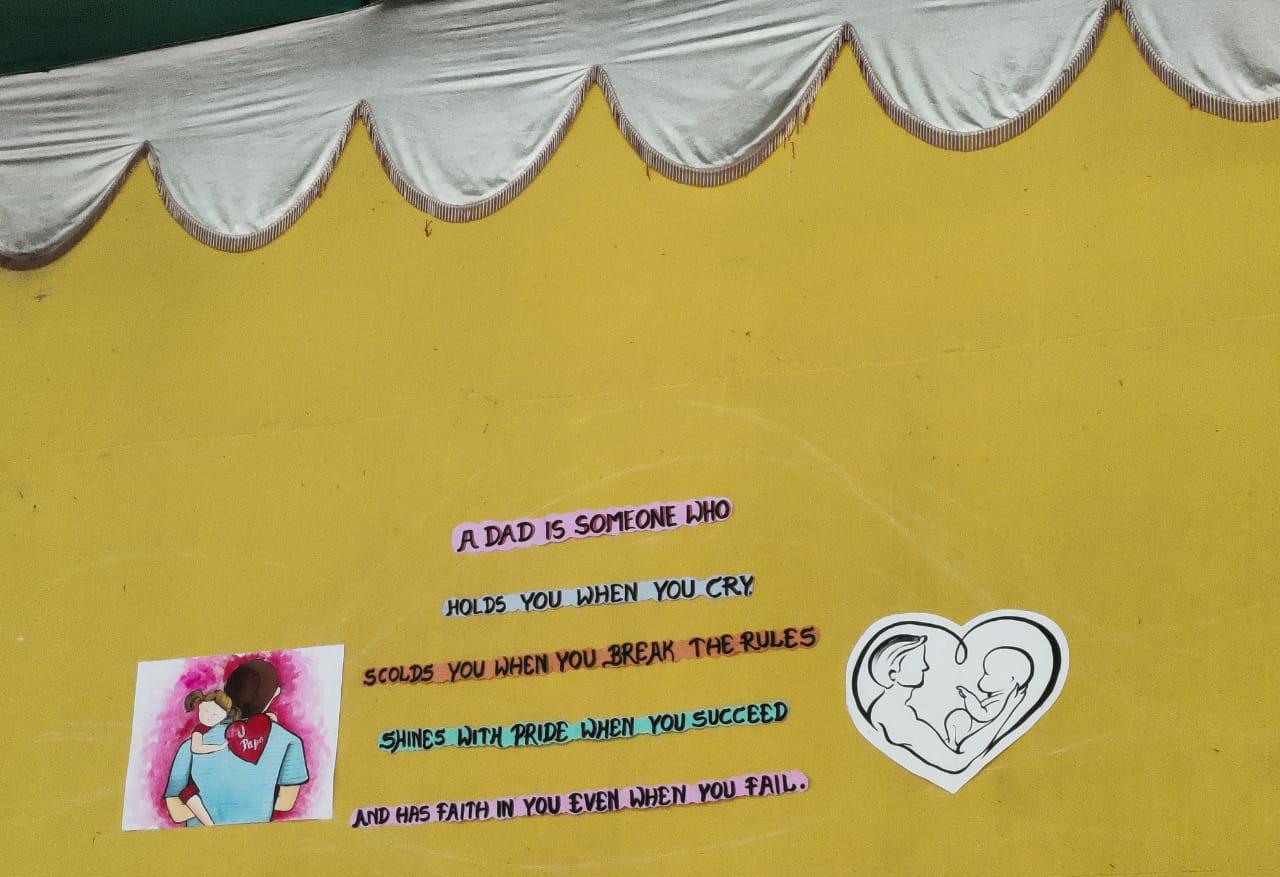 A DAD IS SOMEONE WHO
HOLDS YOU WHEN YOU CRY.
SCOLDS YOU WHEN YOU BREAK THE RULES
SHINES WITH PRIDE WHEN YOU SUCCEED
AND HAS FAITH IN YOU EVEN WHEN YOU FAIL.
Papa